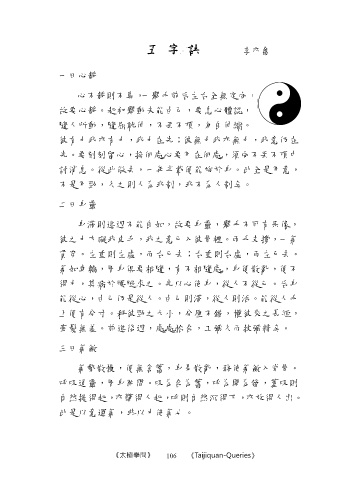 五字訣 李亦畬
一曰心靜
心不靜則不專,一舉手前後左右全無定向,
故要心靜。起初舉動未能由己,要悉心體認,
隨人所動,隨屈就伸,不丟不頂,勿自伸縮。
彼有力我亦有力,我力在先;彼無力我亦無力,我意仍在
先。要刻刻留心,挨何處心要用在何處,須向不丟不頂中
討消息。從此做去,一年半載便能施於身。此全是用意,
不是用勁,久之則人為我制,我不為人制矣。
二曰身靈
身滯則進退不能自如,故要身靈。舉手不可有呆像,
彼之力方礙我皮毛,我之意已入彼骨裡。兩手支撐,一氣
貫穿。左重則左虛,而右已去;右重則右虛,而左已去。
氣如車輪,周身俱要相隨,有不相隨處,身便散亂,便不
得力,其病於腰腿求之。先以心使身,從人不從己。後身
能從心,由己仍是從人。由己則滯,從人則活。能從人手
上便有分寸。秤彼勁之大小,分厘不錯;權彼來之長短,
毫髮無差。前進後退,處處恰合,工彌久而技彌精矣。
三曰氣斂
氣勢散漫,便無含蓄,身易散亂。務使氣斂入脊骨。
呼吸通靈,周身罔間。吸為合為蓄,呼為開為發,蓋吸則
自然提得起,亦拏得人起;呼則自然沉得下,亦放得人出。
此是以意運氣,非以力使氣也。
《太極拳問》 106 《Taijiquan-Queries》